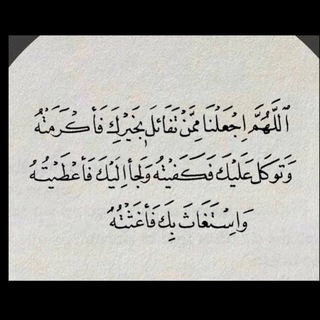 اَللَّهُمَّ اِجْعَلْنَا مِمَّنْ تَفَائَلَ بِخَيْرِكَ فَأَكْرَمْتَهُ
وَتَوَكَّلَ عَلَيْكَ فَكَفَيْتَهُ وَلَجَأَ اِلَيْكَ فَأَعْطَيْتَهُ
وَاِسْتَغَاثَ بِكَ فَأَغَثْتَهُ